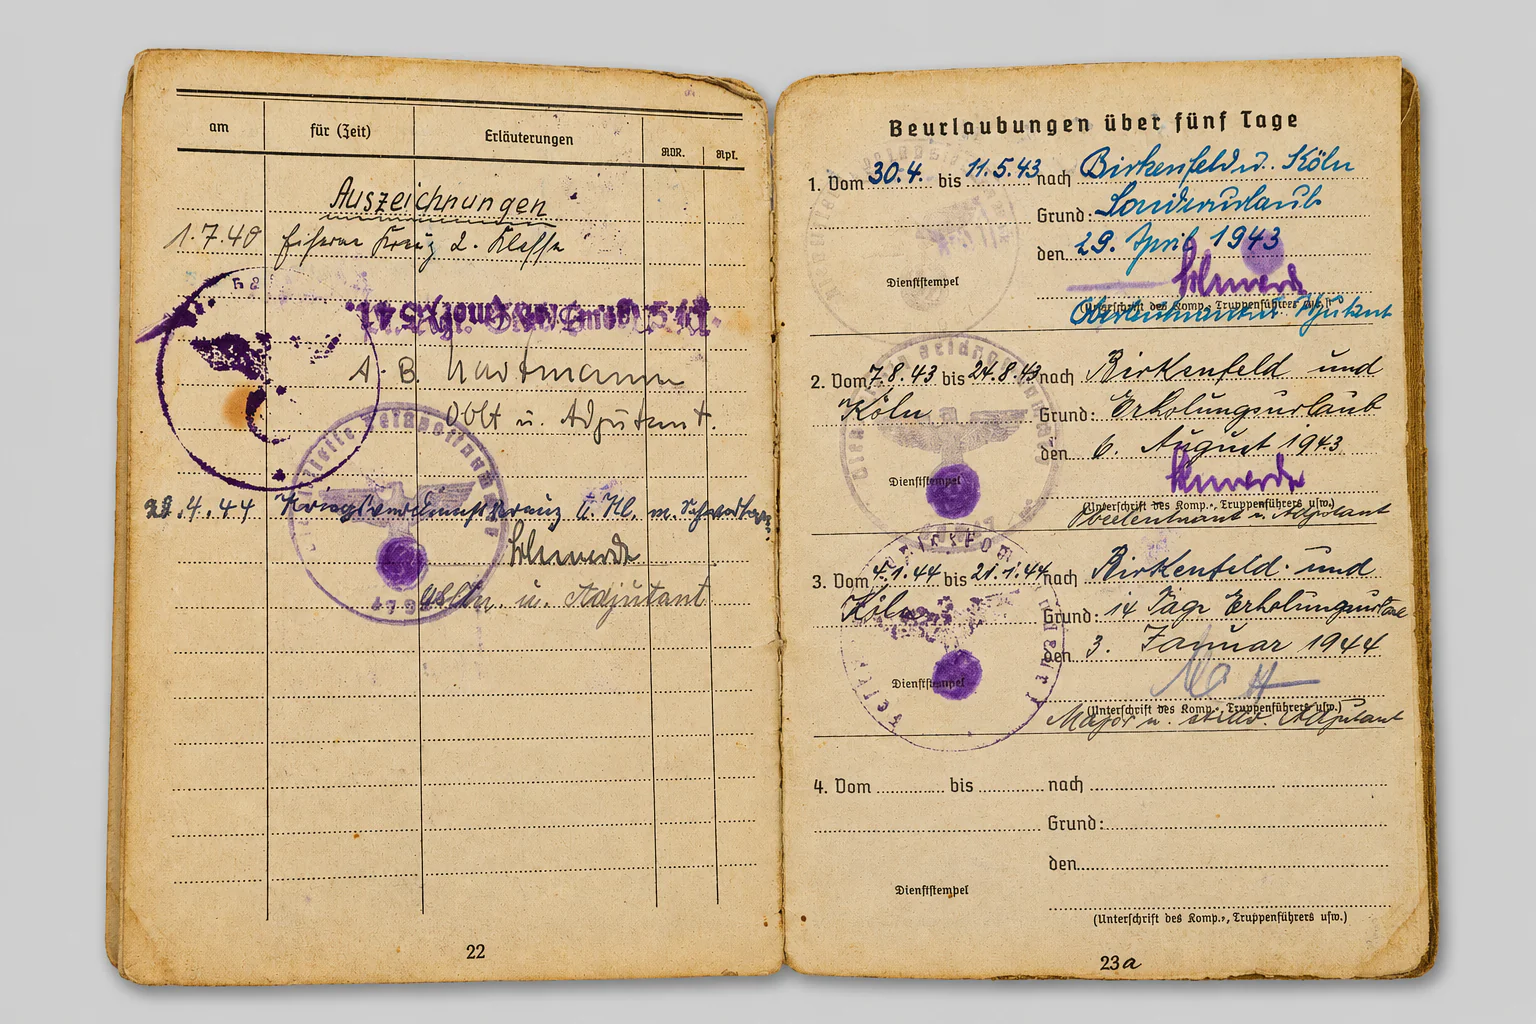 am für (Zeit) Erläuterungen RDR. Rpf.
Auszeichnungen
1.7.40 Eiserne Kreuz 2. Klasse
A. B. Hartmann
Oblt u. Adjutant.
.4.44 Kriegsverdienstkreuz II. Kl. m. Schwertern
u. Adjutant
22
Beurlaubungen über fünf Tage
1. Vom 30.4. bis 11.5.43 nach Birkenfeld u. Köln
Grund: Sonderurlaub
den 29. April 1943
Dienststempel
(Unterschrift des Komp., Truppenführers usw.)
Oberleutnant u. Adjutant
2. Vom 7.8.43 bis 24.8.43 nach Birkenfeld und
Köln Grund: Erholungsurlaub
den 6. August 1943
Dienststempel
(Unterschrift des Komp., Truppenführers usw.)
Oberleutnant u. Adjutant
3. Vom 4.1.44 bis 21.1.44 nach Birkenfeld und
Köln Grund: 14 Tage Erholungsurlaub
den 3. Januar 1944
Dienststempel
(Unterschrift des Komp., Truppenführers usw.)
Major u. stellv. Adjutant
4. Vom bis nach
Grund:
den
Dienststempel
(Unterschrift des Komp., Truppenführers usw.)
23a